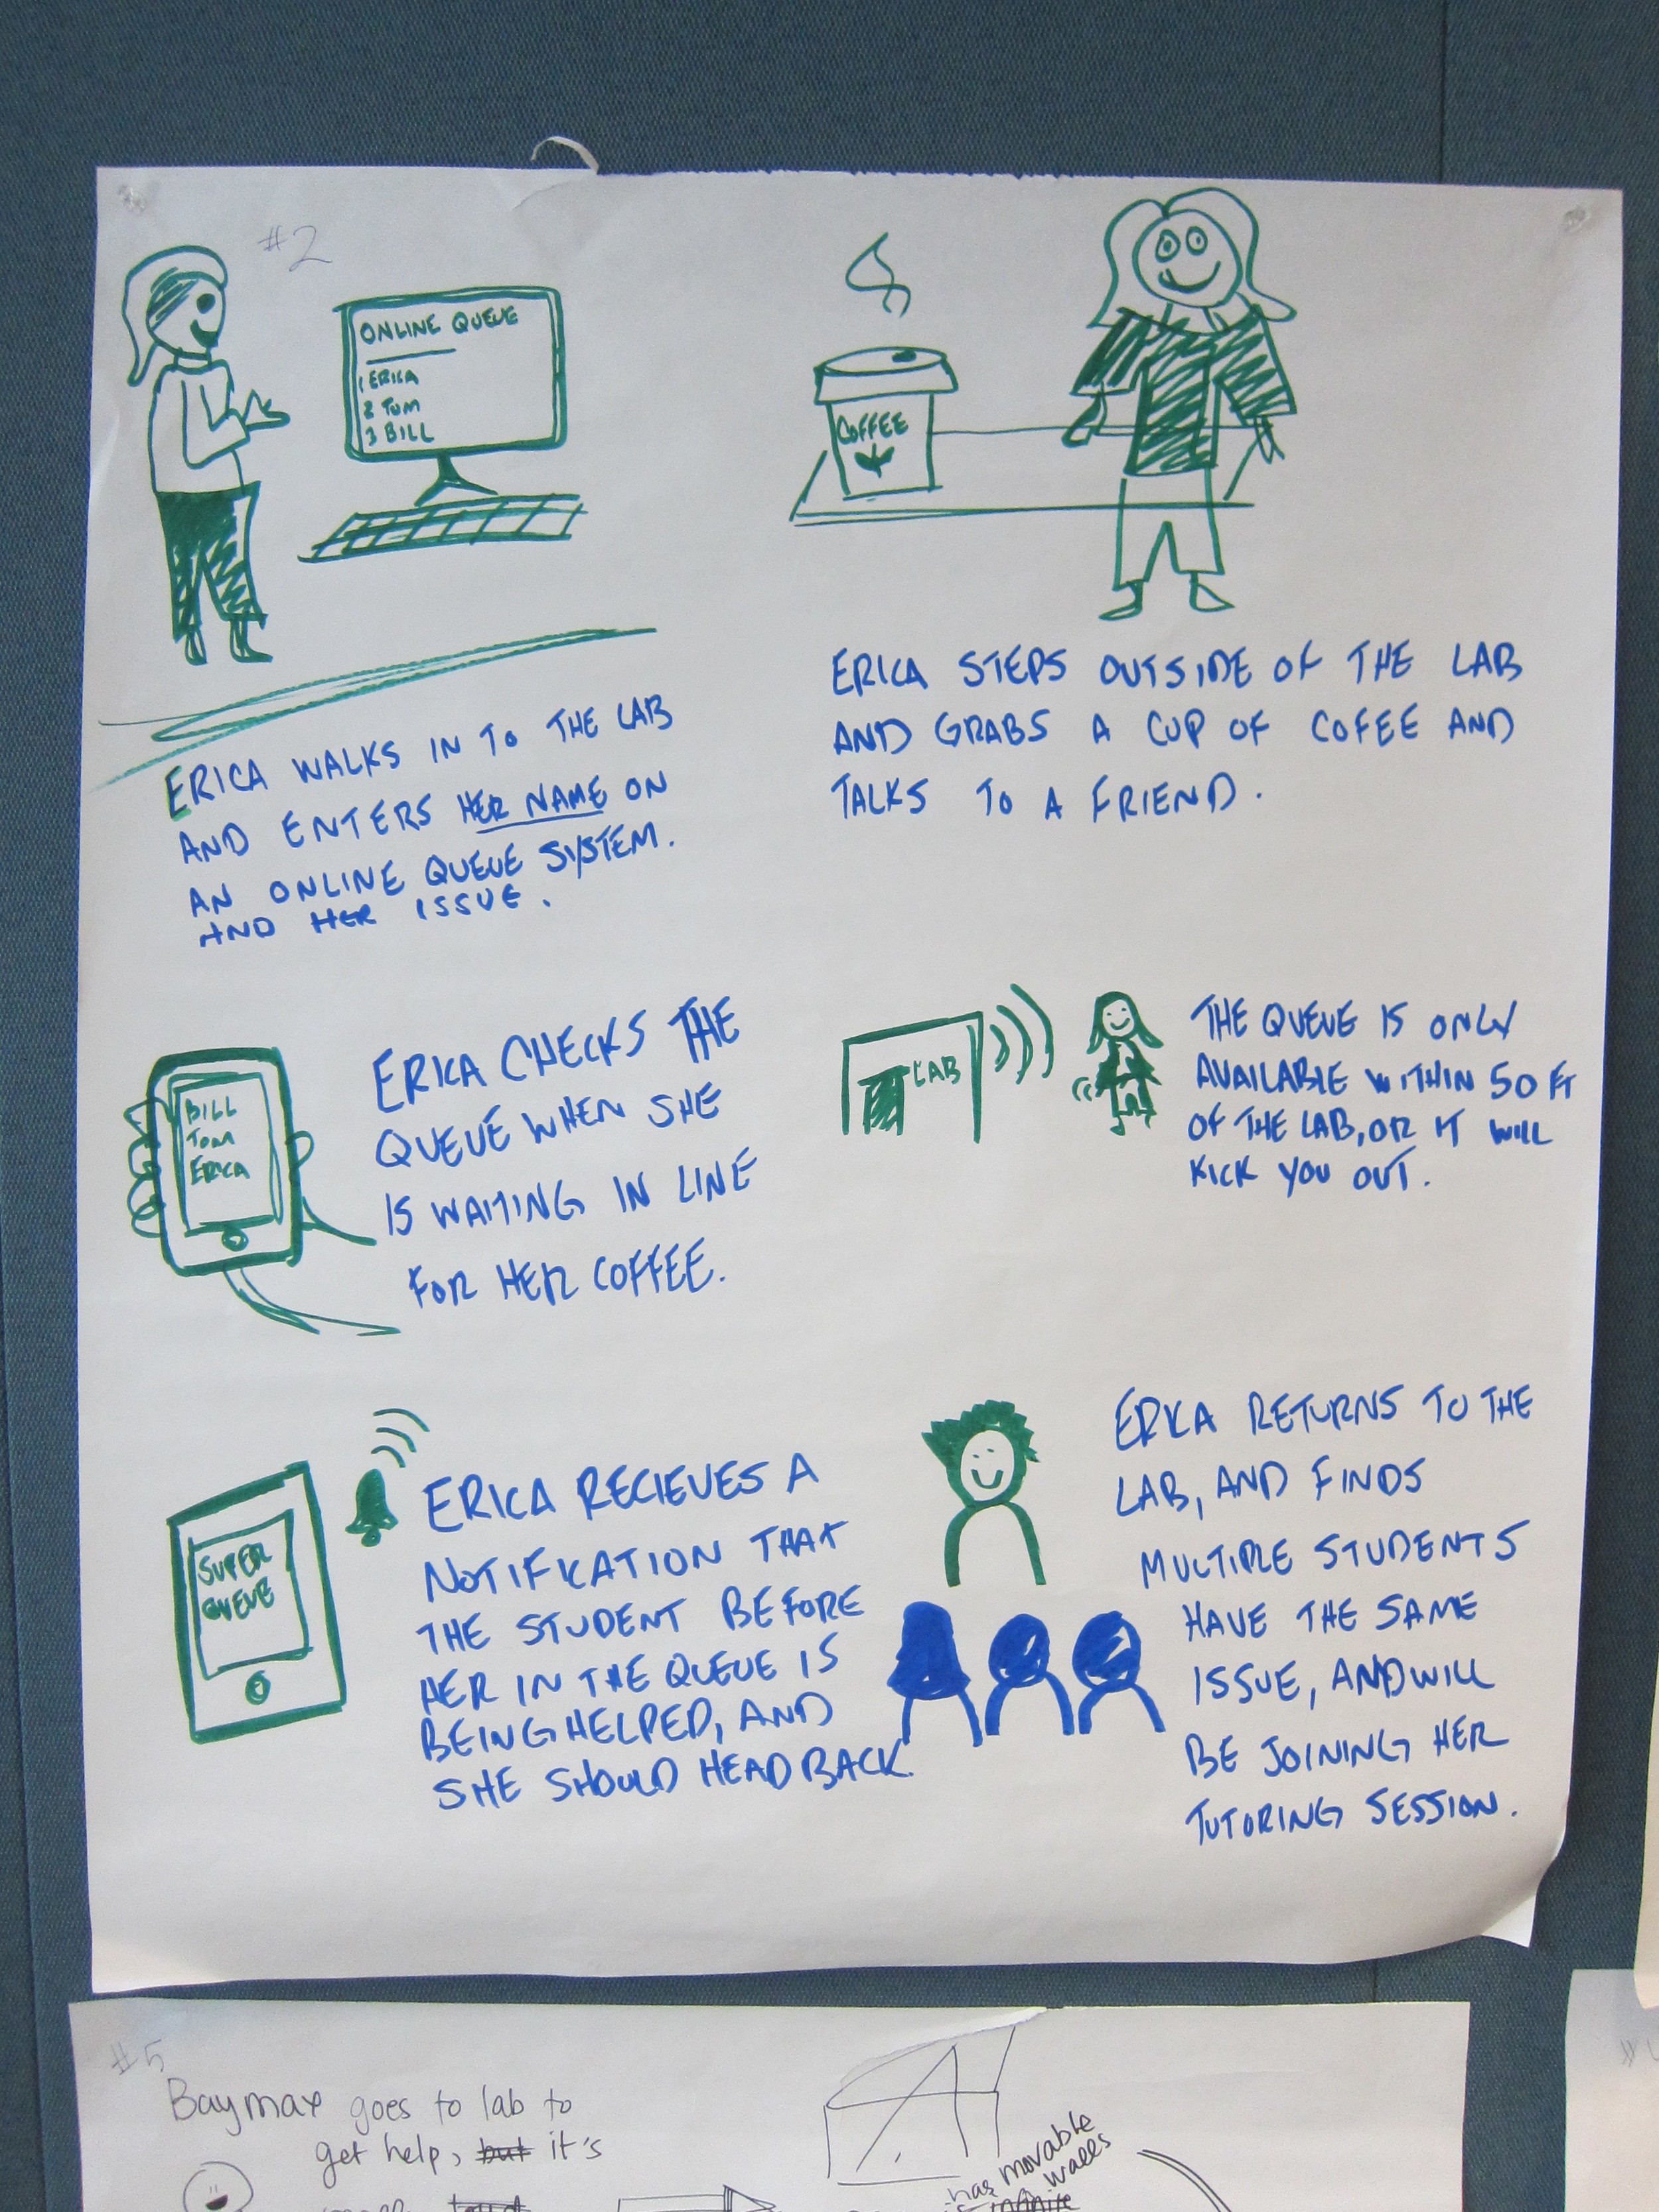 #2
ONLINE QUEUE
1 ERICA
2 TOM
3 BILL
ERICA WALKS IN TO THE LAB
AND ENTERS HER NAME ON
AN ONLINE QUEUE SYSTEM.
AND HER ISSUE.
COFFEE
ERICA STEPS OUTSIDE OF THE LAB
AND GRABS A CUP OF COFEE AND
TALKS TO A FRIEND.
BILL
TOM
ERICA
ERICA CHECKS THE
QUEUE WHEN SHE
IS WAITING IN LINE
FOR HER COFFEE.
LAB
THE QUEUE IS ONLY
AVAILABLE WITHIN 50 FT
OF THE LAB, OR IT WILL
KICK YOU OUT.
SUPER
QUEUE
ERICA RECIEVES A
NOTIFICATION THAT
THE STUDENT BEFORE
HER IN THE QUEUE IS
BEING HELPED, AND
SHE SHOULD HEAD BACK.
ERICA RETURNS TO THE
LAB, AND FINDS
MULTIPLE STUDENTS
HAVE THE SAME
ISSUE, AND WILL
BE JOINING HER
TUTORING SESSION.
#5
Baymax goes to lab to
get help, but it's
has movable
walls
infinite